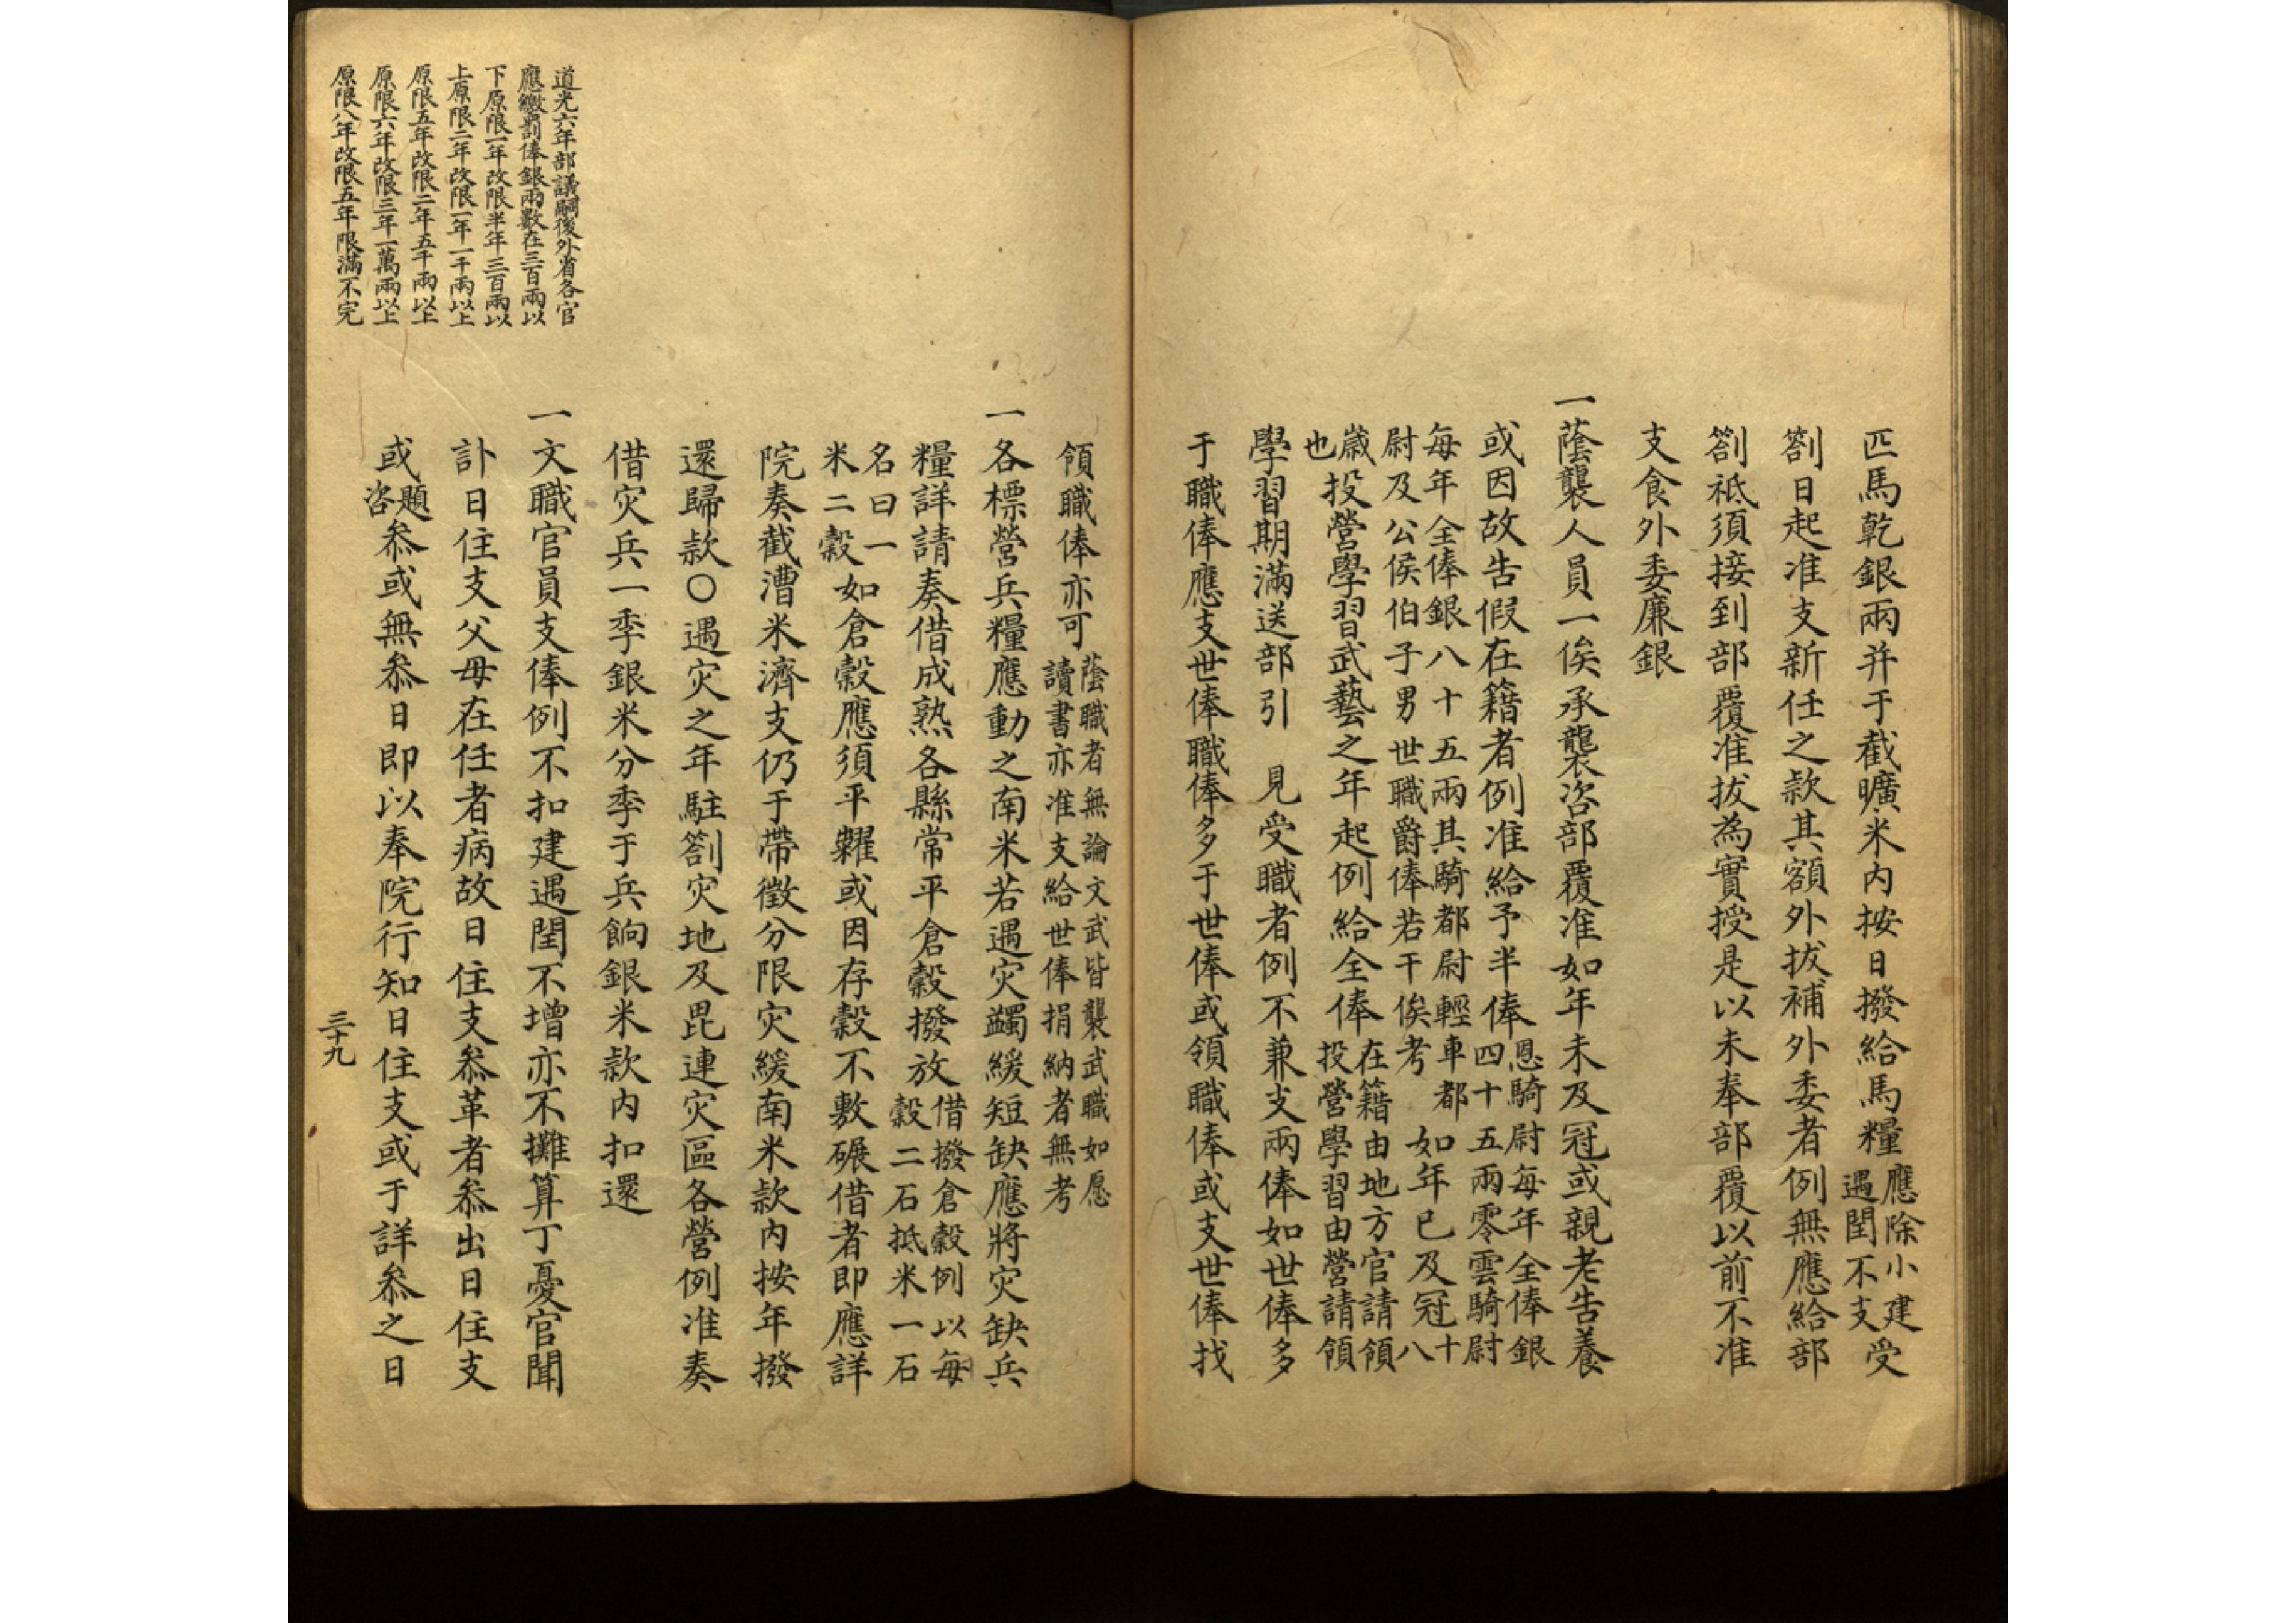 匹馬乾銀兩并于截曠米內按日撥給馬糧應除小建遇閏不支受
劄日起准支新任之款其額外拔補外委者例無應給部
劄祗須接到部覆准拔為實授是以未奉部覆以前不准
支食外委廉銀
一蔭襲人員一俟承襲咨部覆准如年未及冠或親老告養
或因故告假在籍者例准給予半俸恩騎尉每年全俸銀四十五兩零雲騎尉
每年全俸銀八十五兩其騎都尉輕車都尉及公侯伯子男世職爵俸若干俟考如年已及冠十八
歲也投營學習武藝之年起例給全俸在籍由地方官請領投營學習由營請領
學習期滿送部引　見受職者例不兼支兩俸如世俸多
于職俸應支世俸職俸多于世俸或領職俸或支世俸找
領職俸亦可蔭職者無論文武皆襲武職如愿讀書亦准支給世俸捐納者無考
一各標營兵糧應動之南米若遇灾蠲緩短缺應將灾缺兵
糧詳請奏借成熟各縣常平倉穀撥放借撥倉穀例以每穀二石抵米一石
名曰一米二穀如倉穀應須平糶或因存穀不敷碾借者即應詳
院奏截漕米濟支仍于帶徵分限灾緩南米款內按年撥
還歸款〇遇灾之年駐劄灾地及毘連灾區各營例准奏
借灾兵一季銀米分季于兵餉銀米款內扣還
一文職官員支俸例不扣建遇閏不增亦不攤算丁憂官聞
訃日住支父母在任者病故日住支叅革者叅出日住支
或題咨叅或無叅日即以奉院行知日住支或于詳叅之日
三十九
道光六年部議嗣後外省各官
應繳罰俸銀兩數在三百兩以
下原限一年改限半年三百兩以
上原限二年改限一年一千兩以上
原限五年改限二年五千兩以上
原限六年改限三年一萬兩以上
原限八年改限五年限滿不完